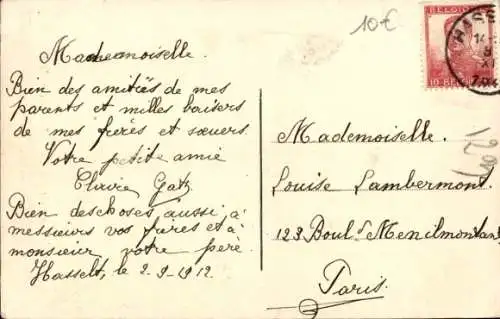 10€
BELGIQUE
HASS
Mademoiselle.
Bien des amitiés de mes
parents et milles baisers
de mes frères et sœurs.
Votre petite amie
Claire
Bien des choses aussi à
messieurs vos frères et à
monsieur votre père
Hasselt, le 2-9-1912
Mademoiselle.
Louise Lambermont.
123 Boul^d Menilmontant
Paris.